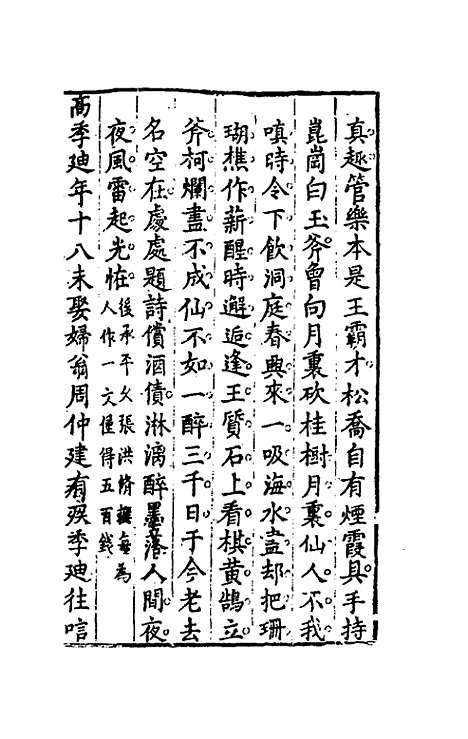 真趣管樂本是王霸才松喬自有煙霞具手持
崑崗白玉斧曾向月裏砍桂樹月裏仙人不我
嗔時令下飲洞庭春興來一吸海水盡却把珊
瑚樵作薪醒時邂逅逢王質石上看棋黃鵠立
斧柯爛盡不成仙不如一醉三千日于今老去
名空在處處題詩償酒債淋漓醉墨落人間夜
夜風雷起光恠後承平久張洪脩撰每為
人作一文僅得五百錢
高季廸年十八未娶婦翁周仲建有疾季廸往唁